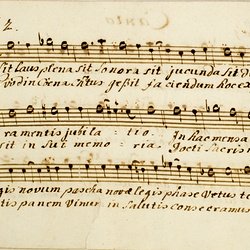 Canto
2.
Sit laus plena sit sonora sit jucunda sit d
Quod in Cæna Xtus gessit faciendum hoc ex
ra mentis jubila - tio. In hac mensa
sit in sui memo - ria. Docti Sacris
gis novum pascha novæ legis phase vetus te
tis panem Vinum in Salutis consecramus